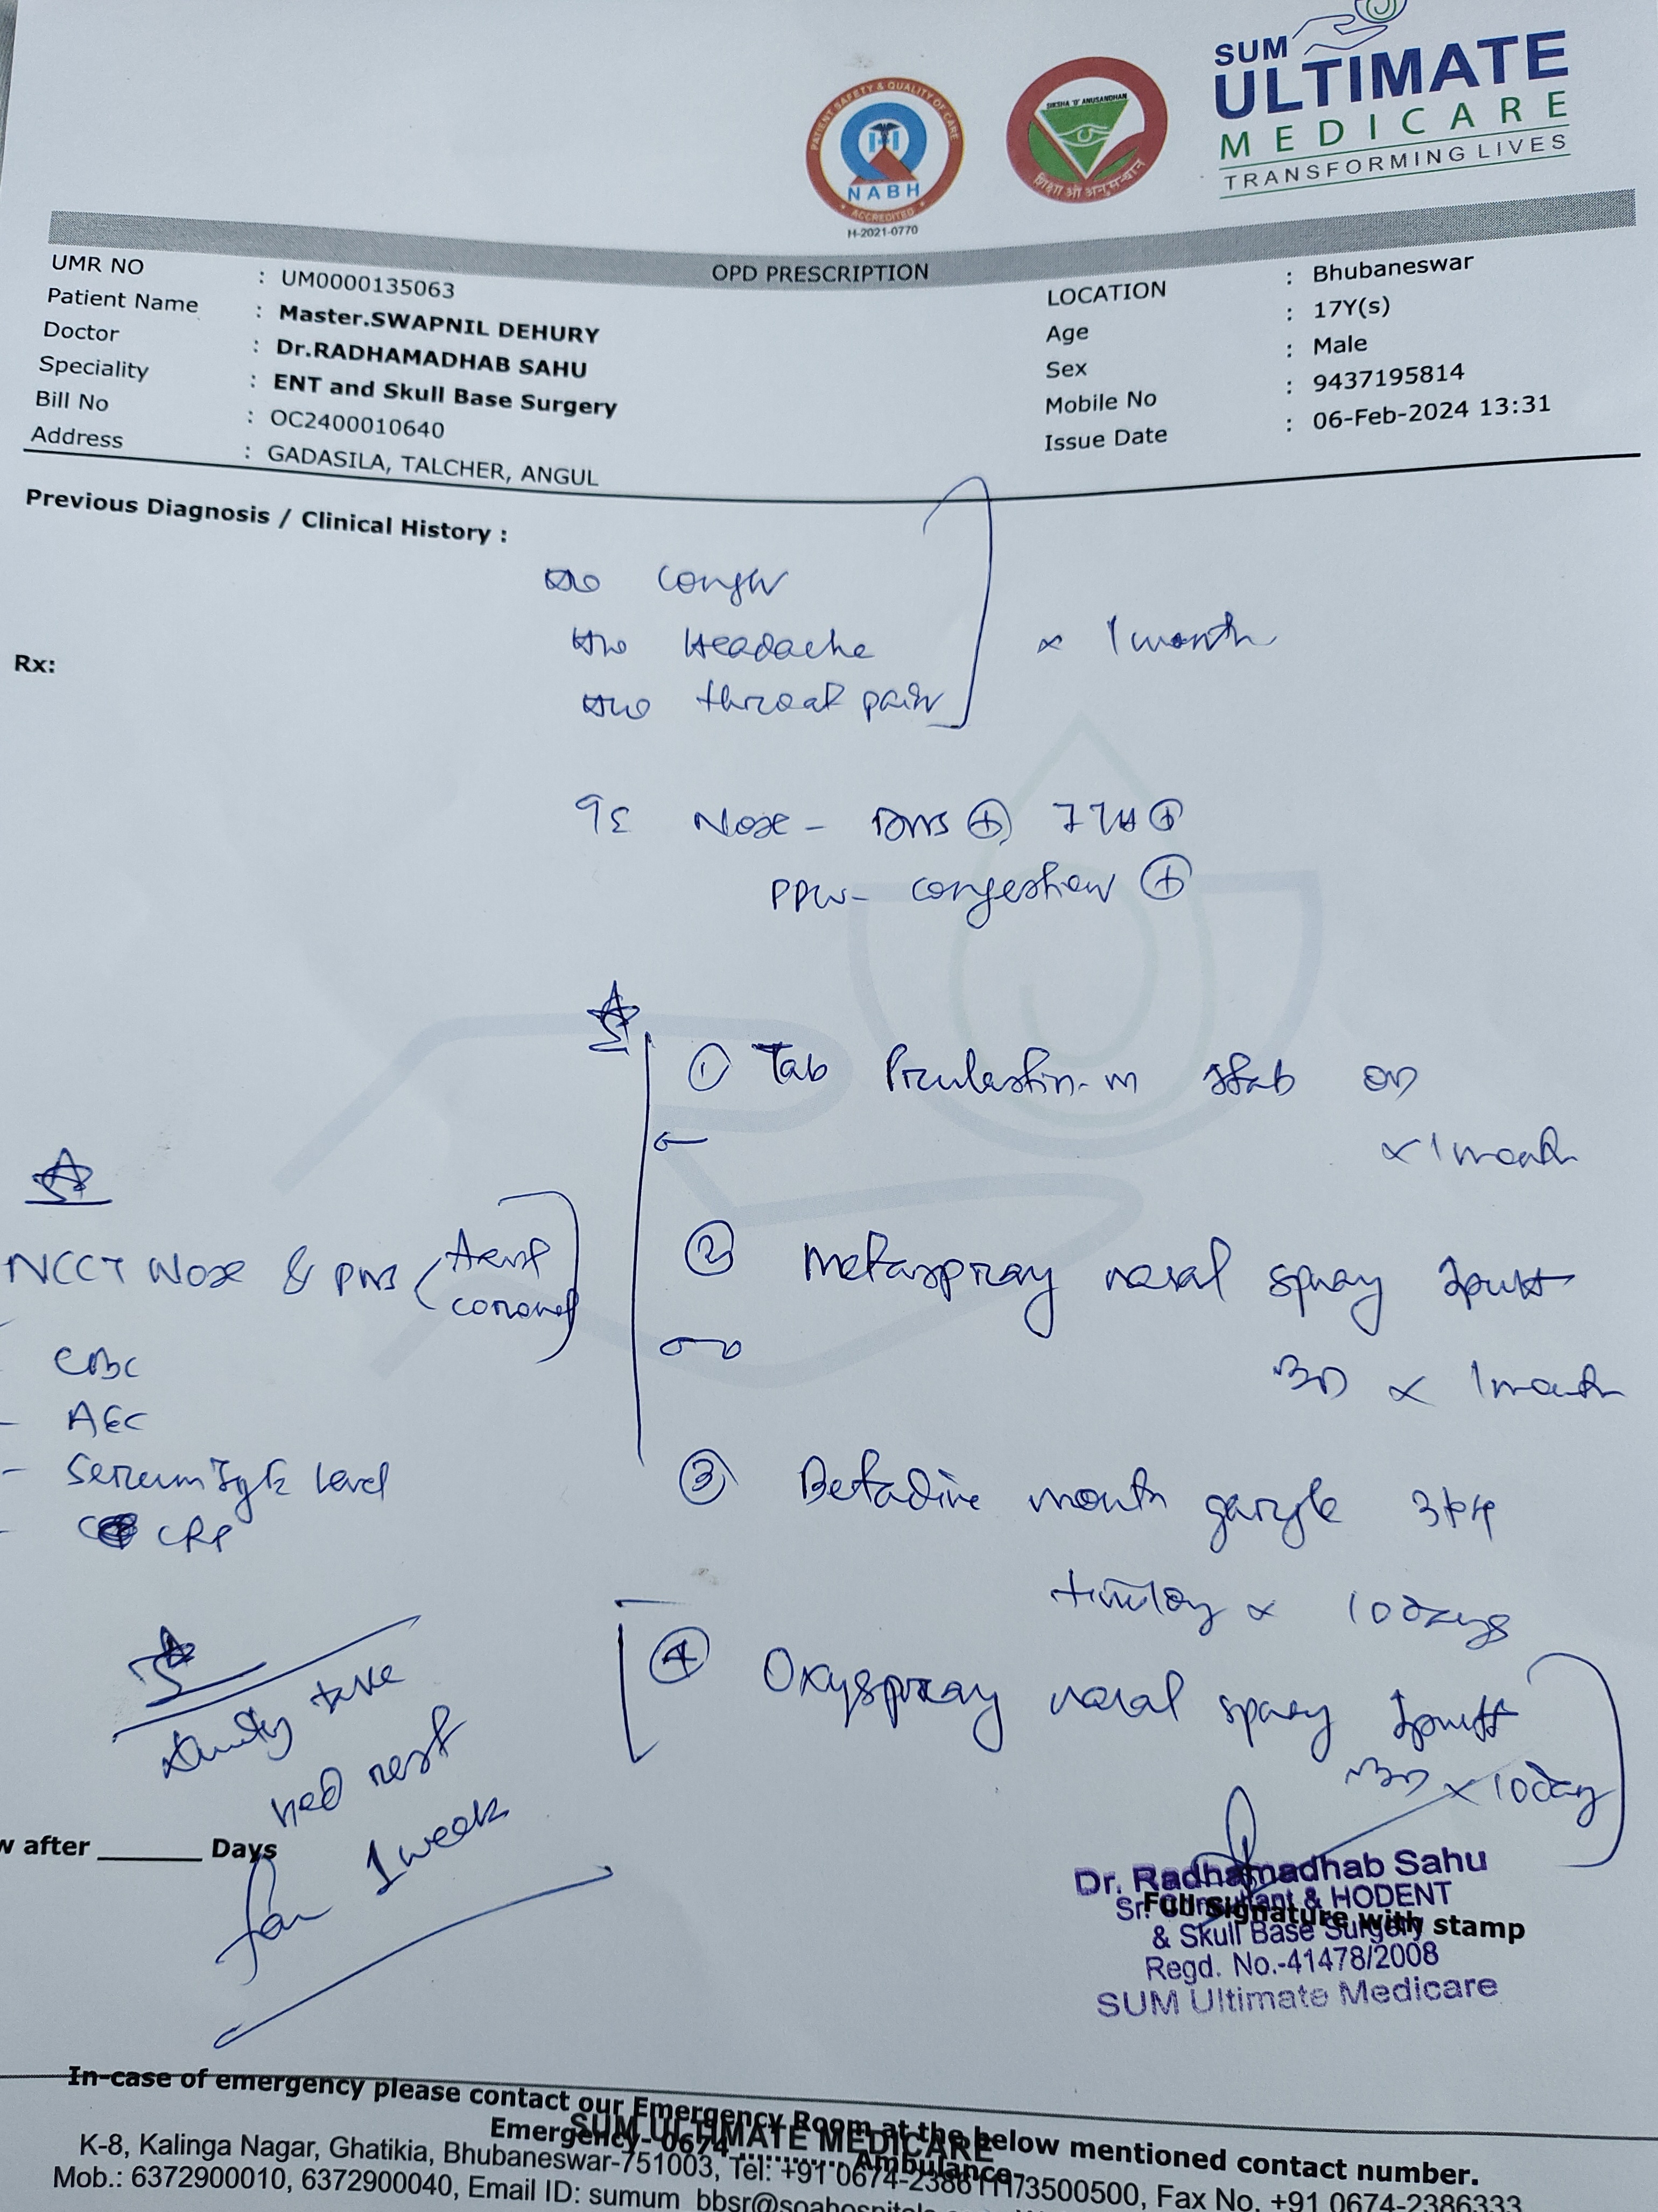 SUM
ULTIMATE
MEDICARE
TRANSFORMING LIVES
PATIENT SAFETY & QUALITY OF CARE
NABH
ACCREDITED
H-2021-0770
SIKSHA 'O' ANUSANDHAN
शिक्षा ओ अनुसन्धान
OPD PRESCRIPTION
UMR NO : UM0000135063
Patient Name : Master.SWAPNIL DEHURY
Doctor : Dr.RADHAMADHAB SAHU
Speciality : ENT and Skull Base Surgery
Bill No : OC2400010640
Address : GADASILA, TALCHER, ANGUL
LOCATION : Bhubaneswar
Age : 17Y(s)
Sex : Male
Mobile No : 9437195814
Issue Date : 06-Feb-2024 13:31
Previous Diagnosis / Clinical History :
H/o Cough
H/o Headache
H/o throat pain
x 1 month
Rx:
Nose - DNS ⊕,
PPW - congestion ⊕
① Tab
x 1 month
② Metaspray nasal spray 2puff
BD x 1 month
③ Betadine mouth gargle 3 to 4
time/day x 10 days
④ Oxyspray nasal spray
BD x 10 day
NCCT Nose & PNS (
coronal
CBC
- AEC
- Serum IgE level
- CRP
take
bed rest
for 1 week
w after ______ Days
Dr. Radhamadhab Sahu
Sr. Consultant & HODENT
Full Signature with stamp
& Skull Base Surgery
Regd. No.-41478/2008
SUM Ultimate Medicare
In-case of emergency please contact our Emergency Room at the below mentioned contact number.
SUM ULTIMATE MEDICARE
Emergency- 0674 ........... Ambulance
K-8, Kalinga Nagar, Ghatikia, Bhubaneswar-751003, Tel: +91 0674-2386 Fax No. +91 0674-2386333
Mob.: 6372900010, 6372900040, Email ID: